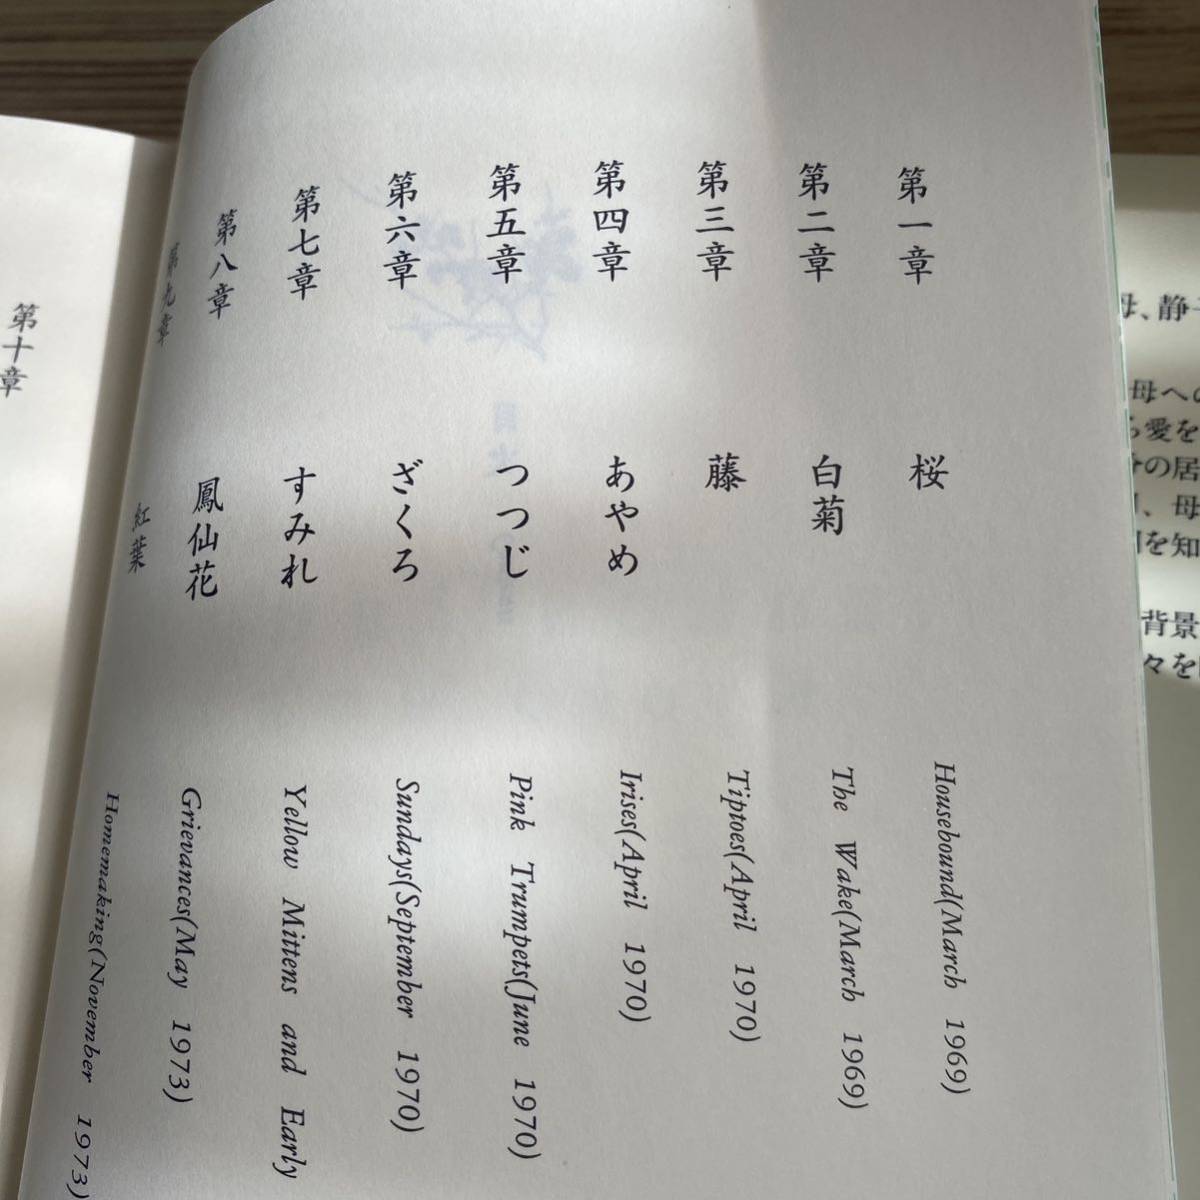 第一章 桜 Housebound(March 1969)
第二章 白菊 The Wake(March 1969)
第三章 藤 Tiptoes(April 1970)
第四章 あやめ Irises(April 1970)
第五章 つつじ Pink Trumpets(June 1970)
第六章 ざくろ Sundays(September 1970)
第七章 すみれ Yellow Mittens and Early
第八章 鳳仙花 Grievances(May 1973)
第九章 紅葉 Homemaking(November 1973)
第十章
母、静
母への
愛を
分の居
、母
を知
背景
々を